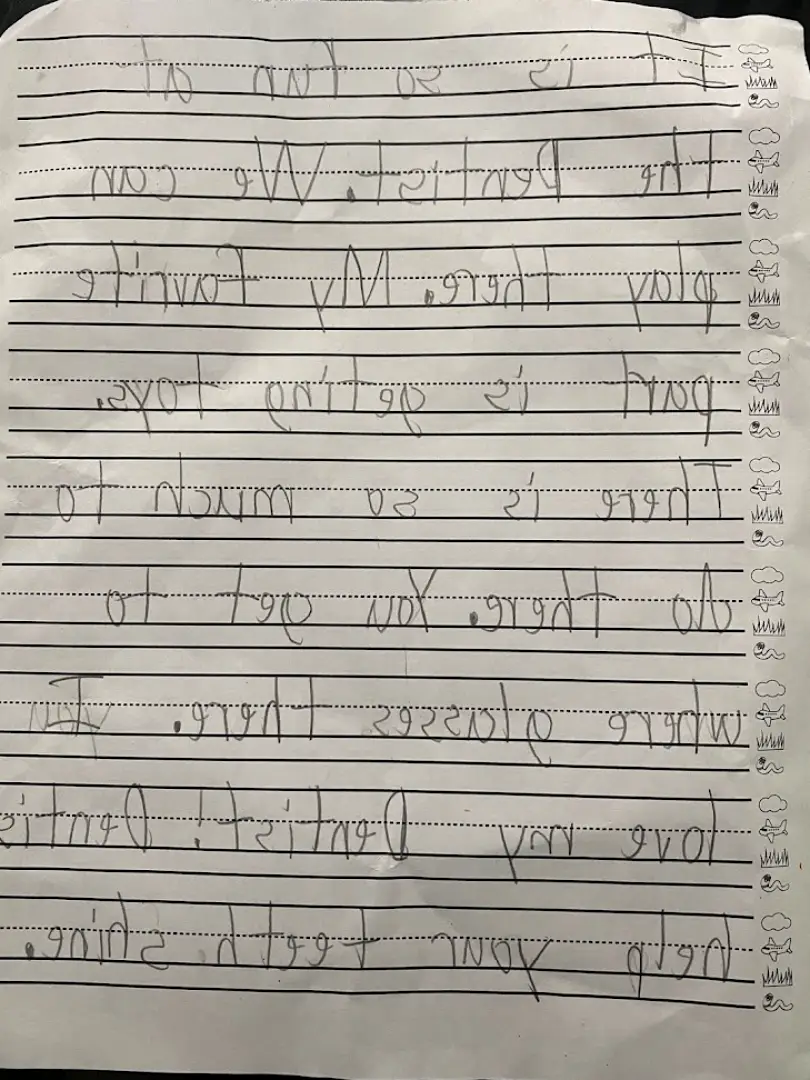 It is so fun at
the Dentist. We can
play there. My favrite
part is geting toys.
There is so munch to
do there. You get to
where glasses there. I
love my Dentist! Dentis
help your teeth shine.